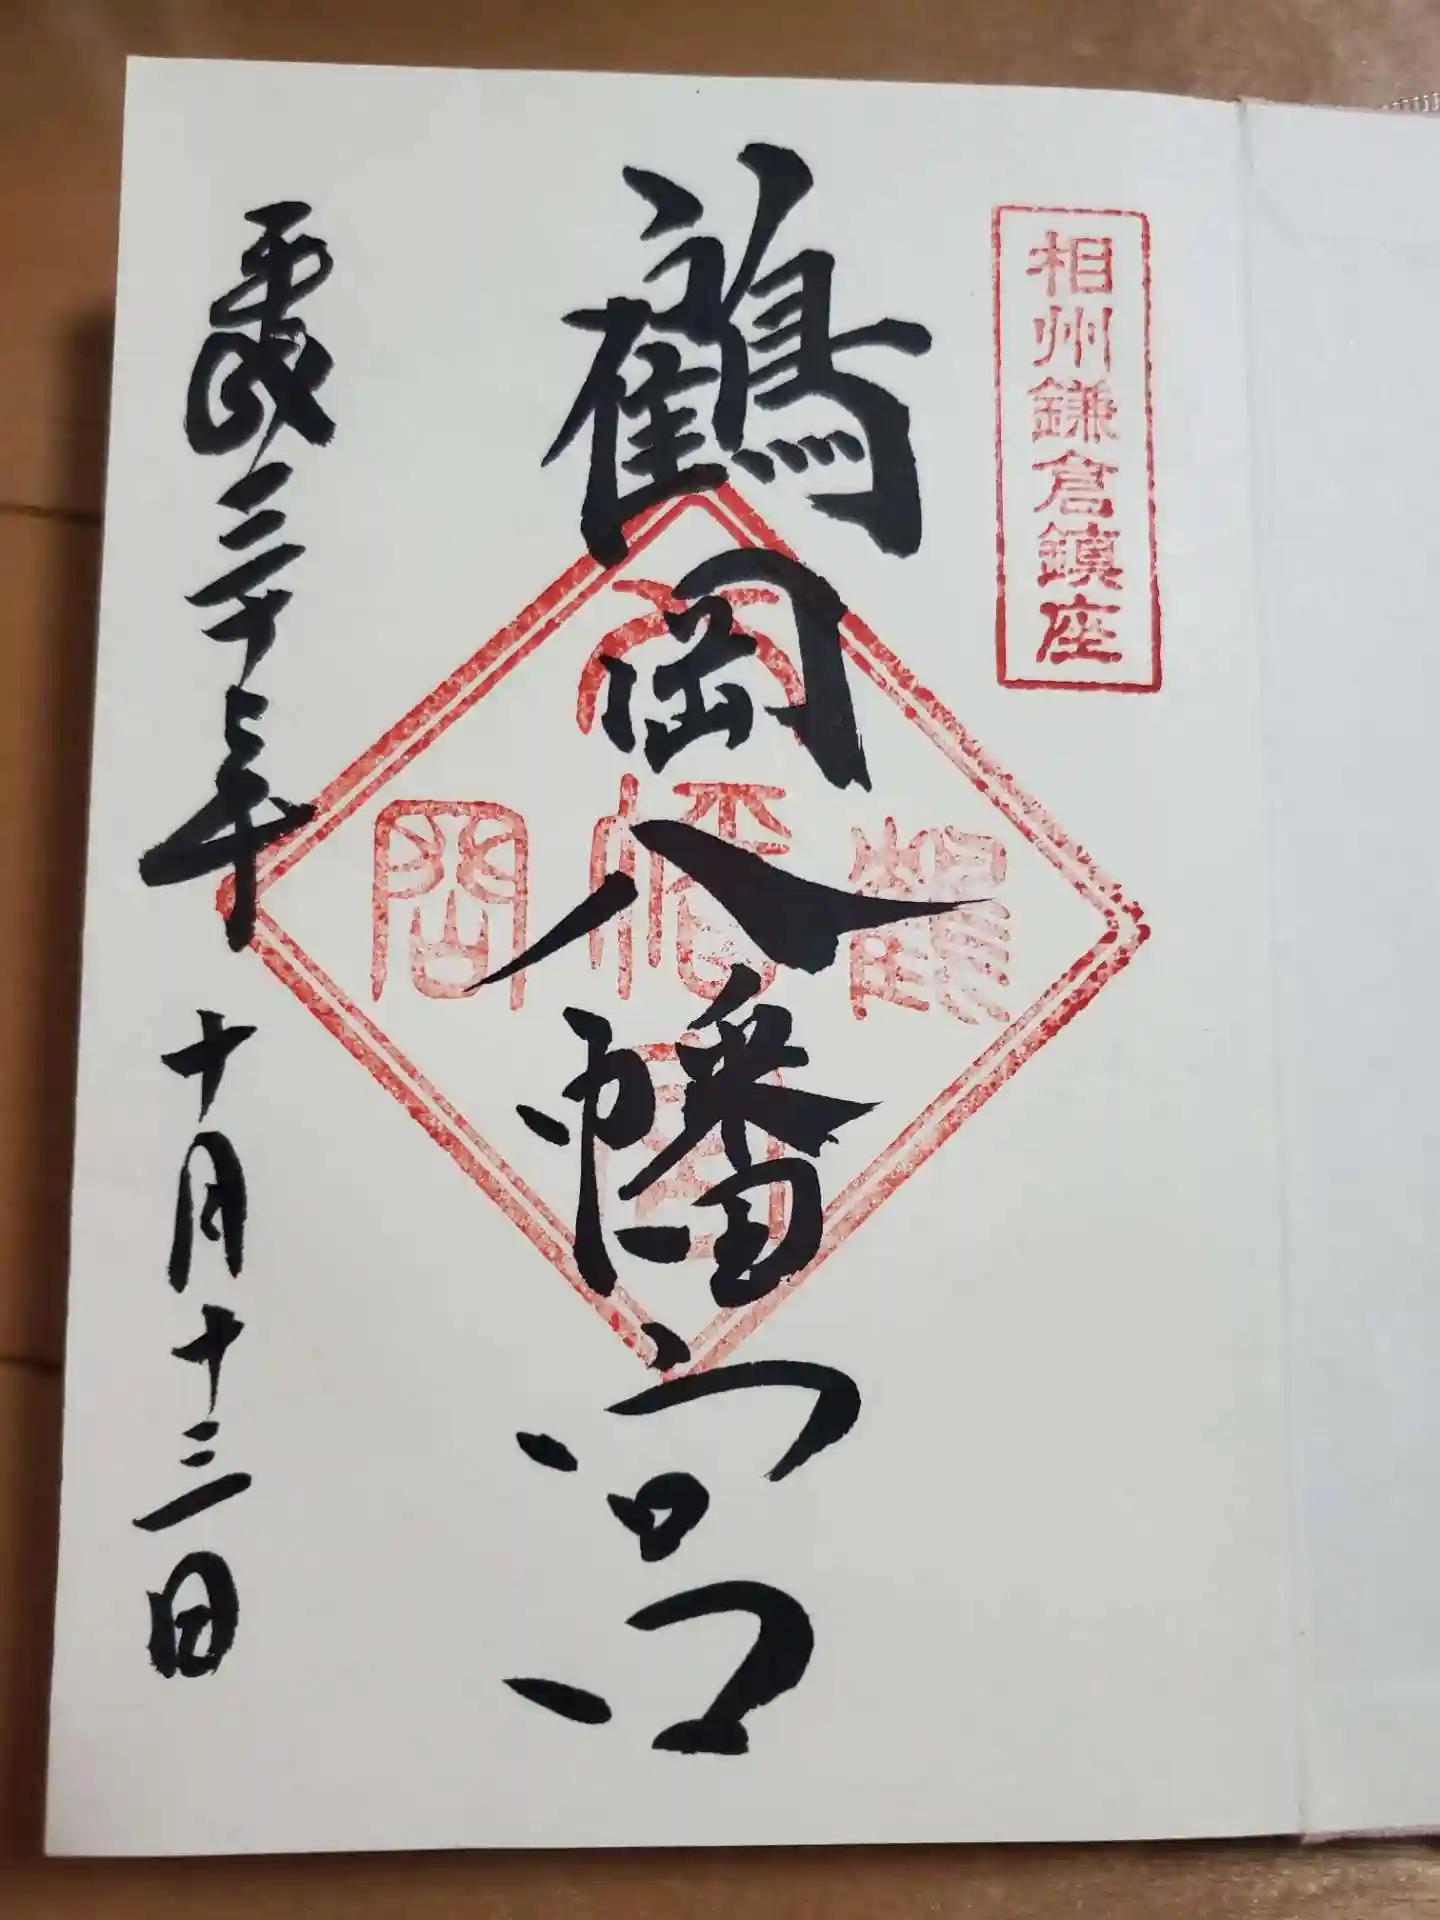 相州鎌倉鎮座
鶴岡八幡宮
鶴岡八幡宮
平成二十年 十月十三日